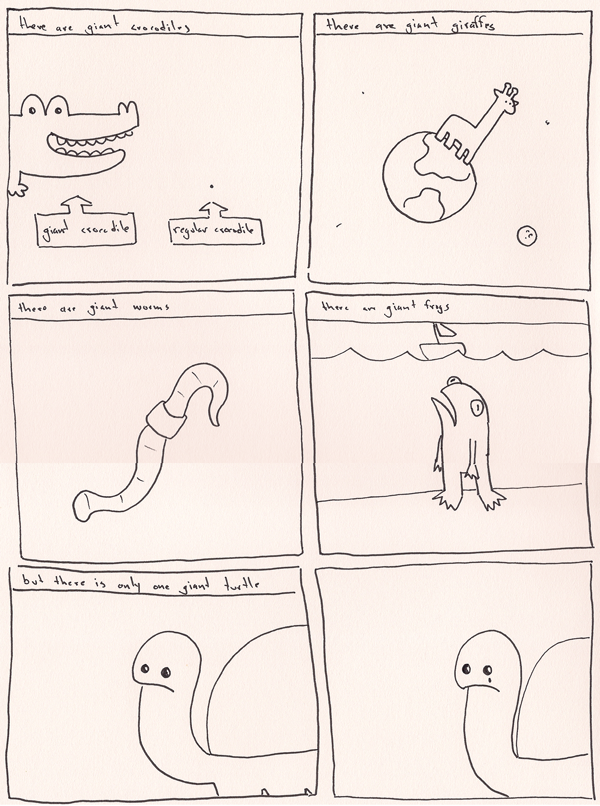 there are giant crocodiles
giant crocodile
regular crocodile
there are giant giraffes
there are giant worms
there are giant frogs
but there is only one giant turtle